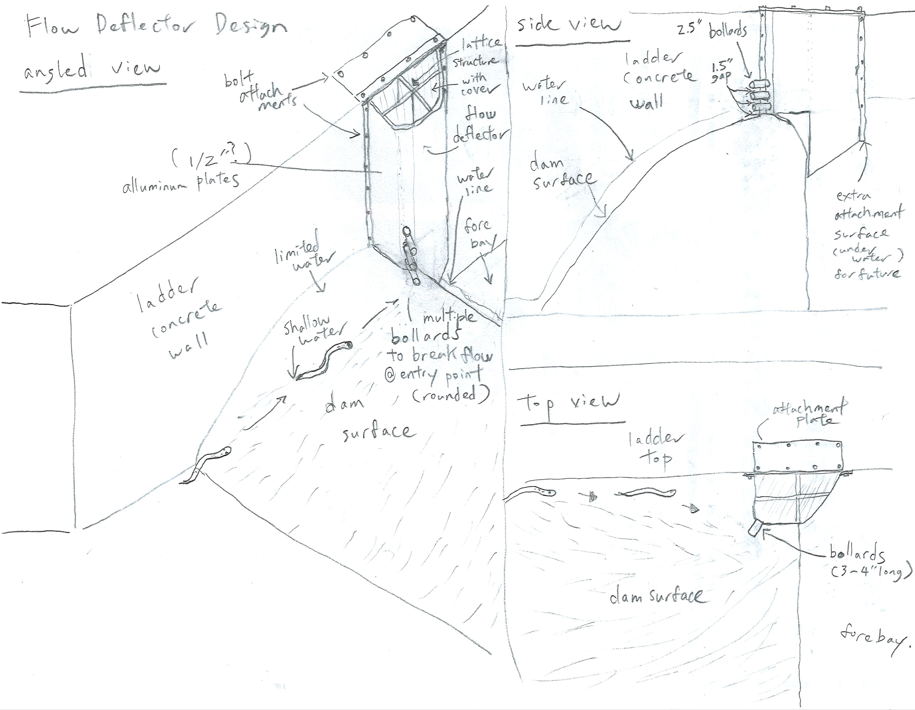 Flow Deflector Design
angled view
bolt
attach
ments
lattice
structure
with
cover
flow
deflector
(1/2"?)
alluminum plates
water
line
fore
bay
limited
water
ladder
concrete
wall
shallow
water
multiple
bollards
to break flow
@ entry point
(rounded)
dam
surface
side view
2.5" bollards
1.5"
gap
ladder
concrete
wall
water
line
dam
surface
extra
attachment
surface
(under
water)
for future
top view
attachment
plate
ladder
top
bollards
(3~4" long)
dam surface
forebay.